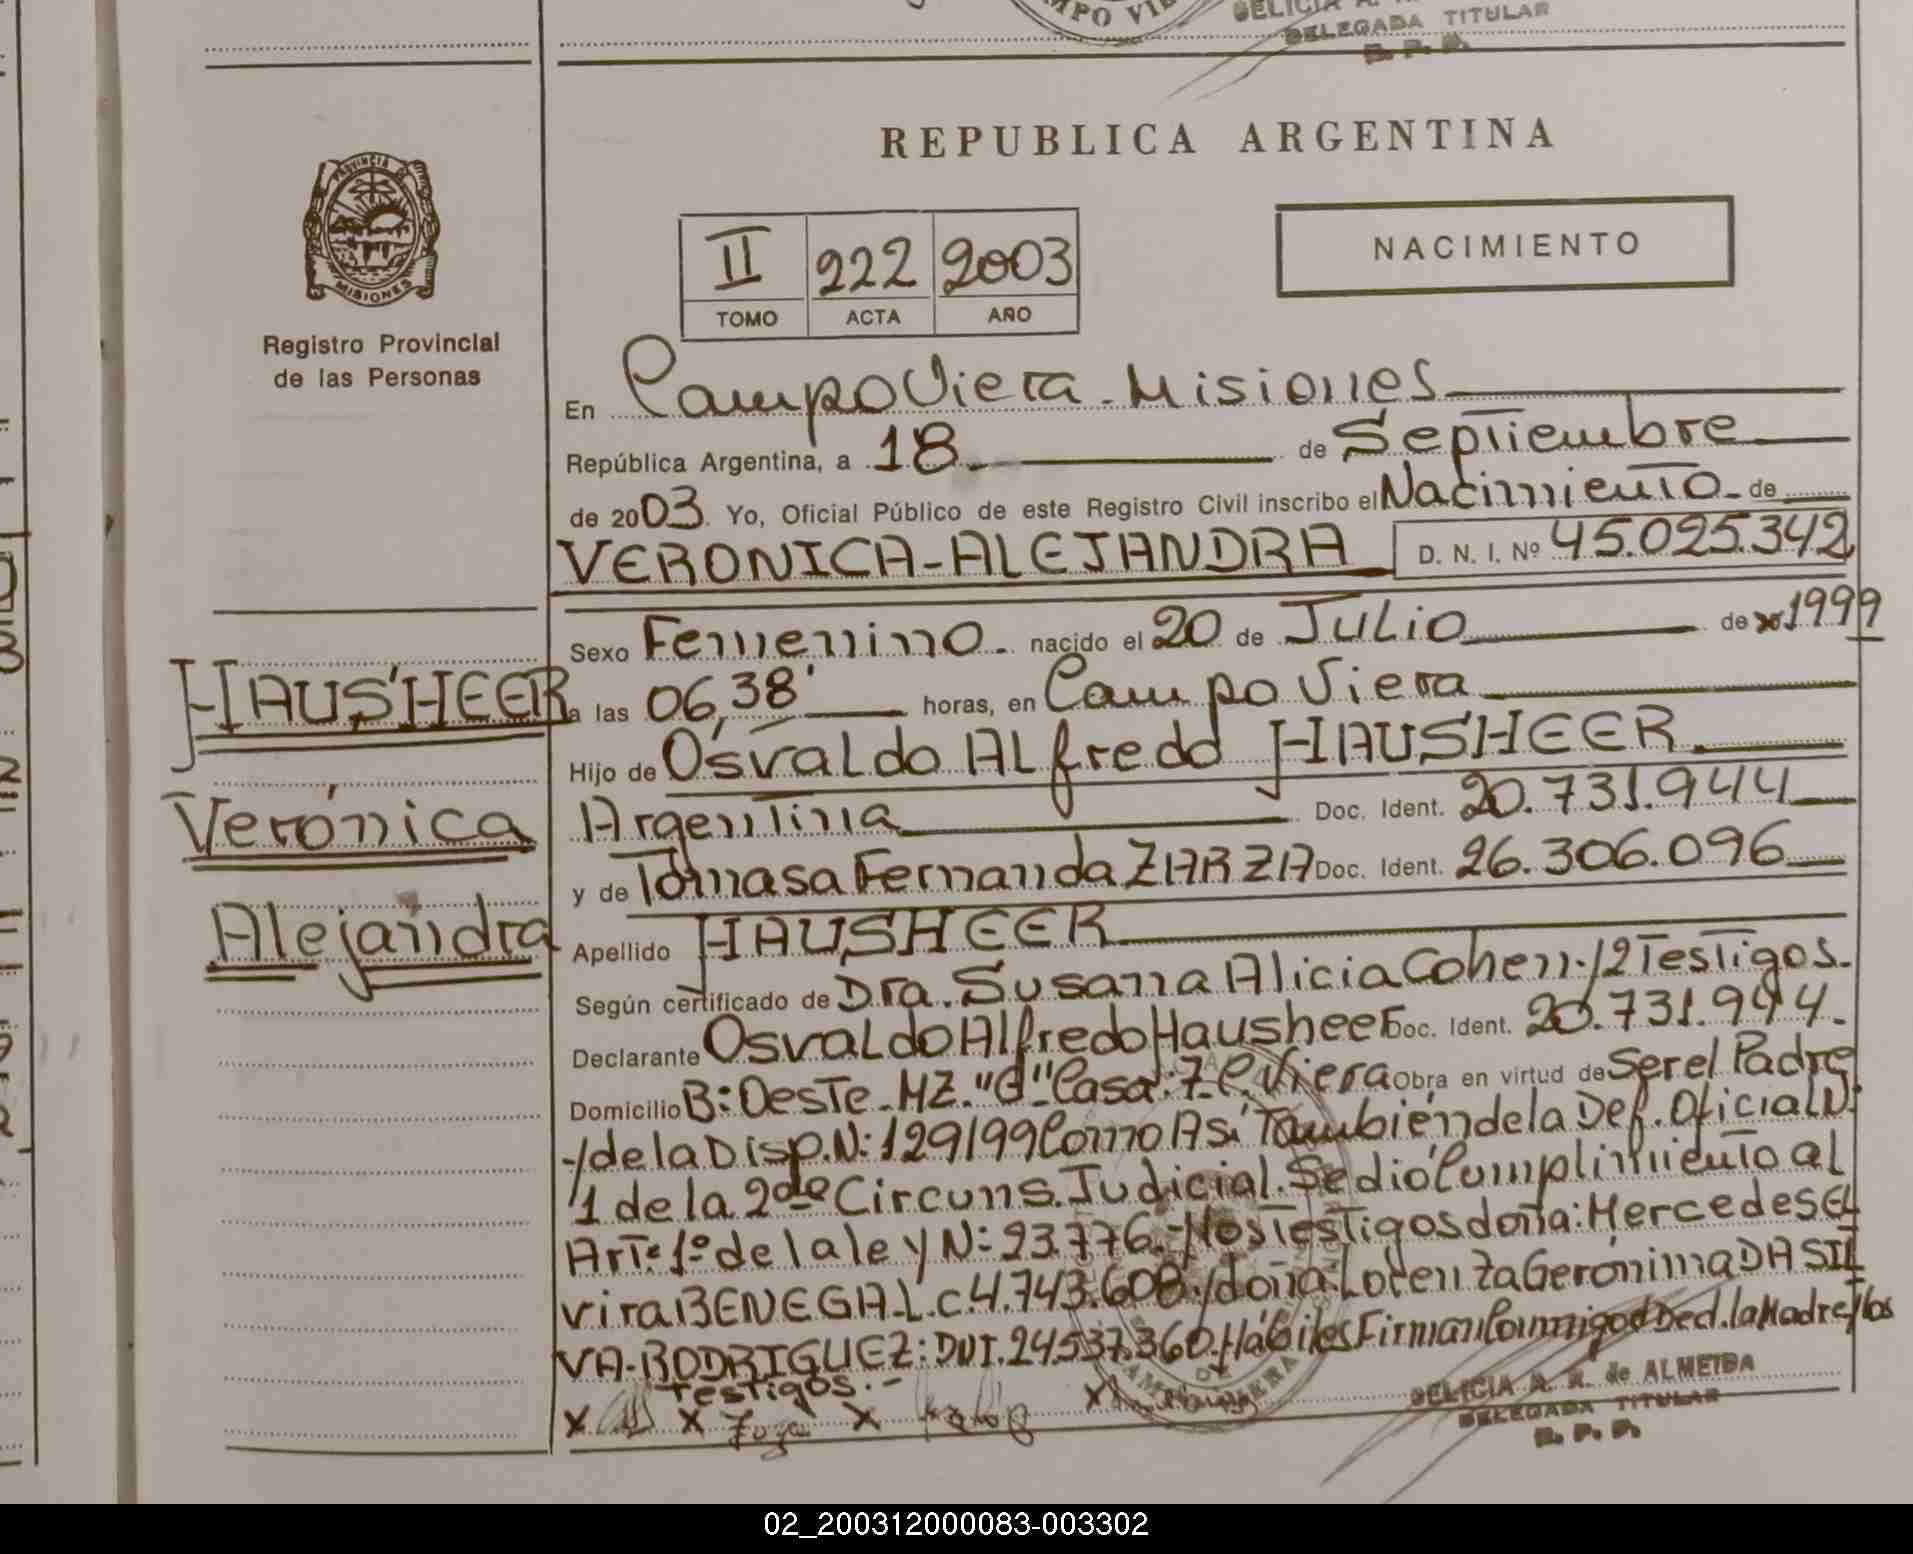 MPO VIE
DELICIA A.
DELEGADA TITULAR
R. P. P.
REPUBLICA ARGENTINA
PROVINCIA DE
MISIONES
Registro Provincial
de las Personas
II 222 2003
TOMO ACTA AÑO
NACIMIENTO
En Campo Viera - Misiones
República Argentina, a 18 de Septiembre
de 2003. Yo, Oficial Público de este Registro Civil inscribo el Nacimiento de
VERONICA-ALEJANDRA D. N. I. Nº 45.025.342
Sexo Femenino. nacido el 20 de Julio de 20 1999
HAUSHEER
a las 06,38' horas, en Campo Viera
Hijo de Osvaldo Alfredo HAUSHEER.
Verónica
Argentina Doc. Ident. 20.731.944
y de Tomasa Fernanda ZARZA Doc. Ident. 26.306.096
Alejandra
Apellido HAUSHEER
Según certificado de Dra. Susana Alicia Cohen./2 Testigos.
Declarante Osvaldo Alfredo Hausheer Doc. Ident. 20.731.944.
Domicilio B: Oeste - MZ. "G" Casa: 7- C. Viera Obra en virtud de Ser el Padre
-/de la Disp. N: 129/99 Como Asi También de la Def. Oficial N:
1 de la 2da Circuns. Judicial. Se dió Cumplimiento al
Art. 1º de la ley N: 23.776.- Los Testigos doña: Mercedes El
vira BENEGA-L.c. 4.743.608./doña Lorenza Gerónima DA SIL
VA-RODRIGUEZ: DNI. 24.537.360. Hábiles Firman Conmigo el Decl. la Madre y los
Testigos.-
X X X X
DELICIA A. R. de ALMEIDA
DELEGADA TITULAR
R. P. P.
02_200312000083-003302